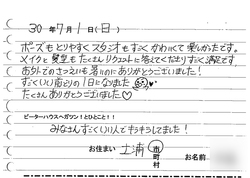 30年7月1日(日)
ポーズもとりやすくスタジオもすごくかわいくて楽しかったです。
メイクと髪型もたくさんリクエストに答えてくださりすごく満足です
お外でのさつえいも暑いのにありがとうございました!
すごくいい前どりの1日になりました
たくさんありがとうございました♡
ピーターハウスへガツン!とひとこと!!
みなさんすごくいい人でおちつけました!
お住まい 土浦 市町村 お名前